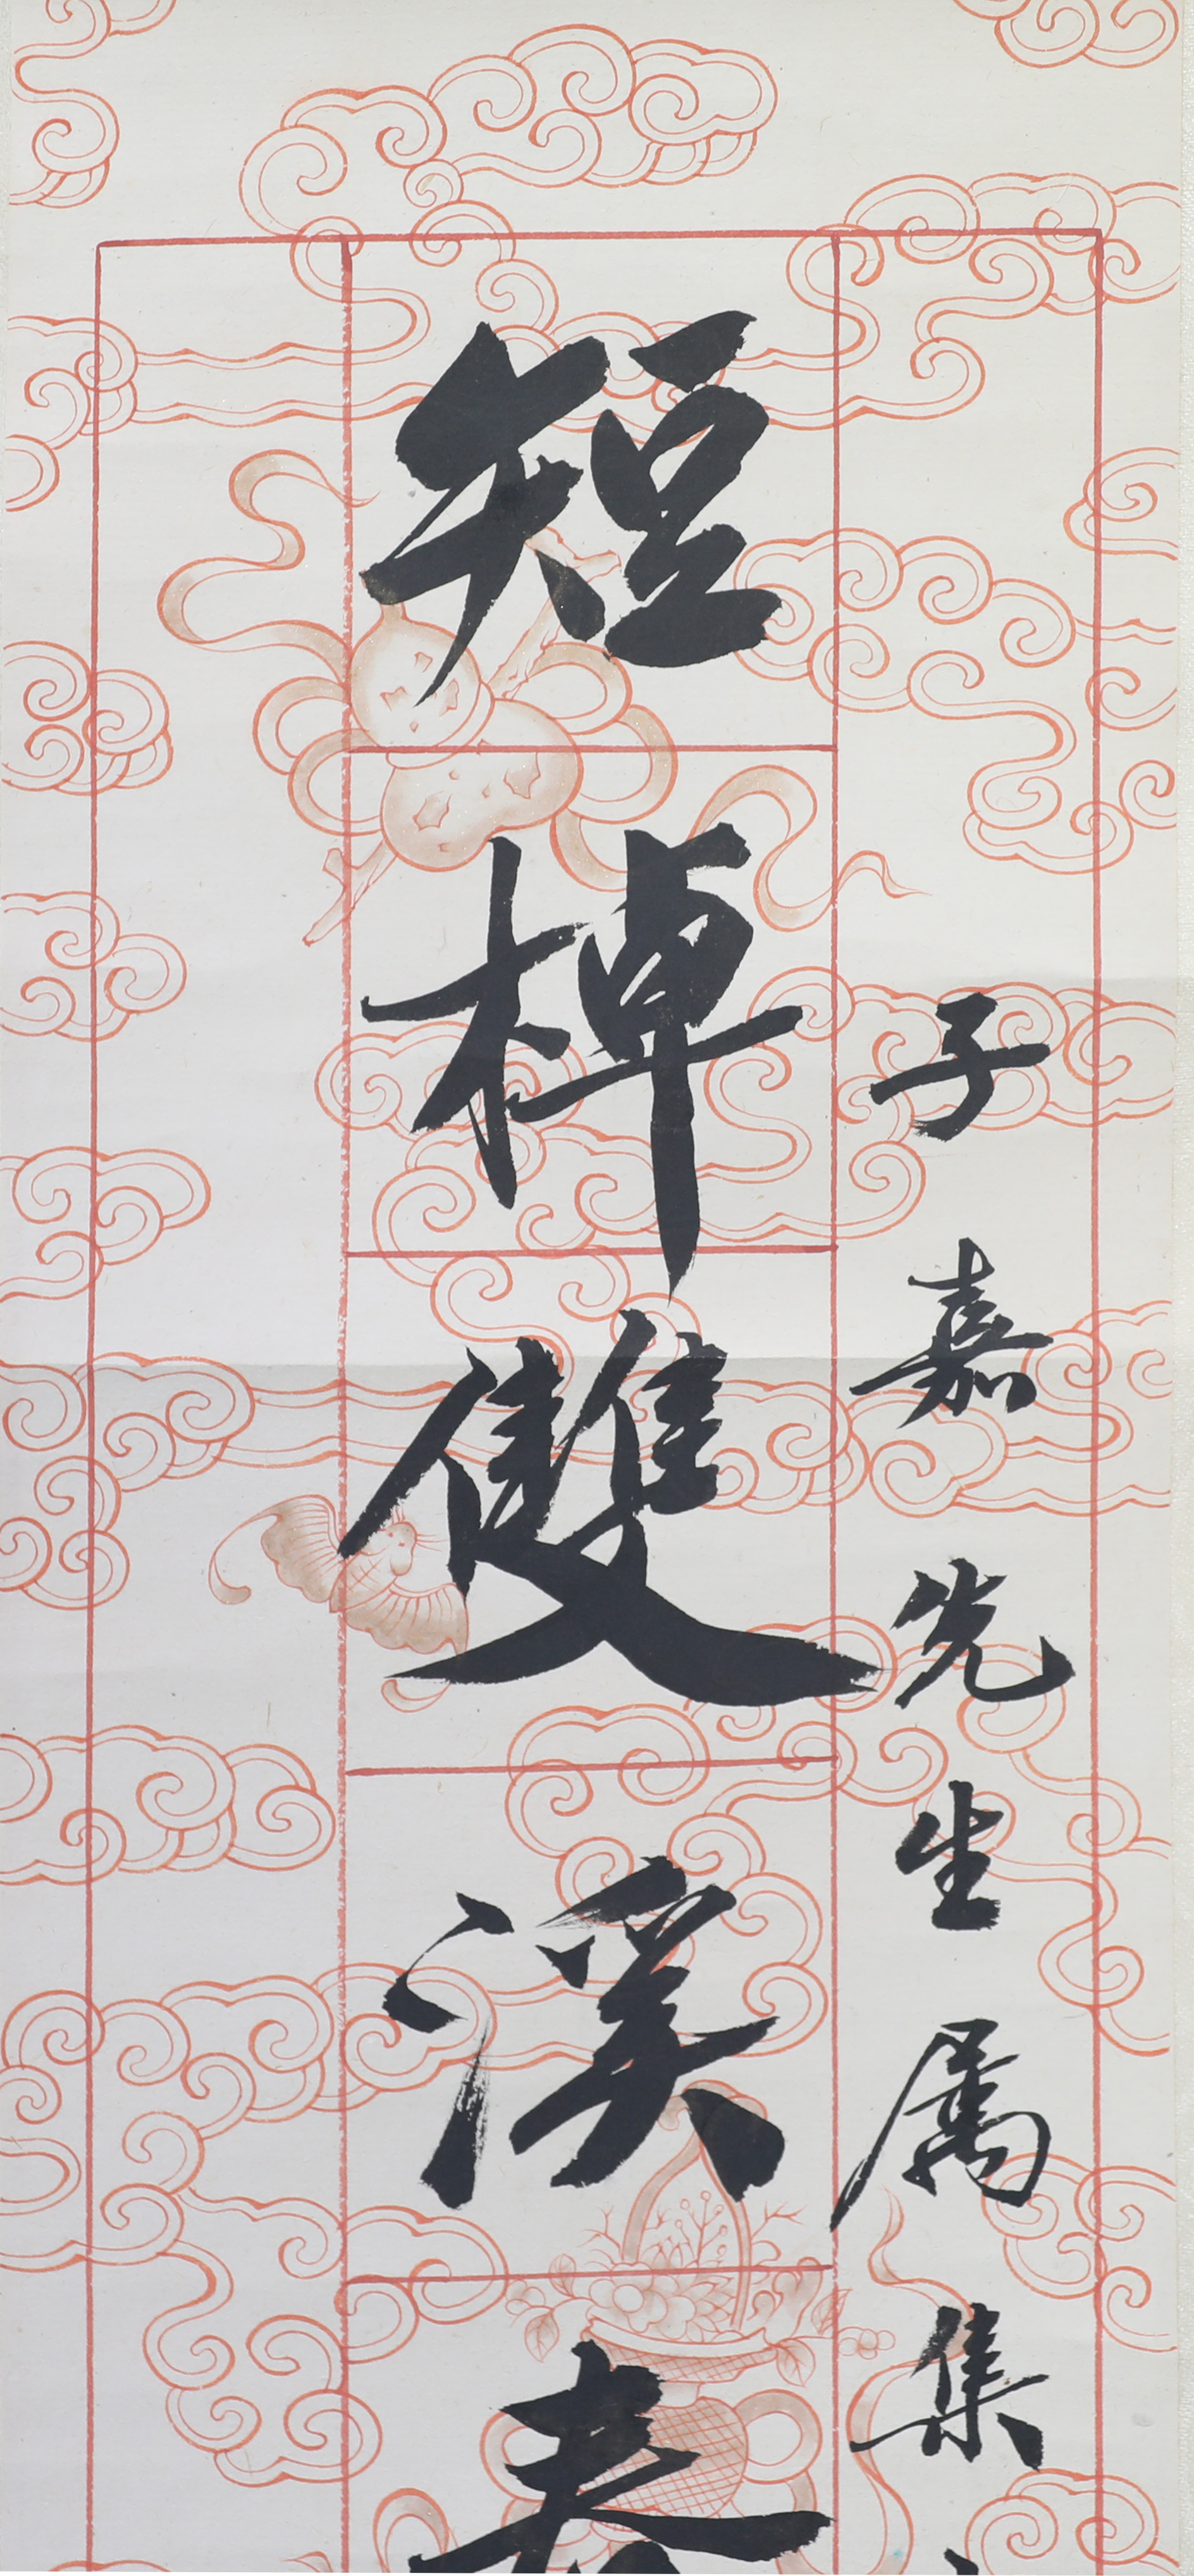 子嘉先生属集
短棹雙溪春